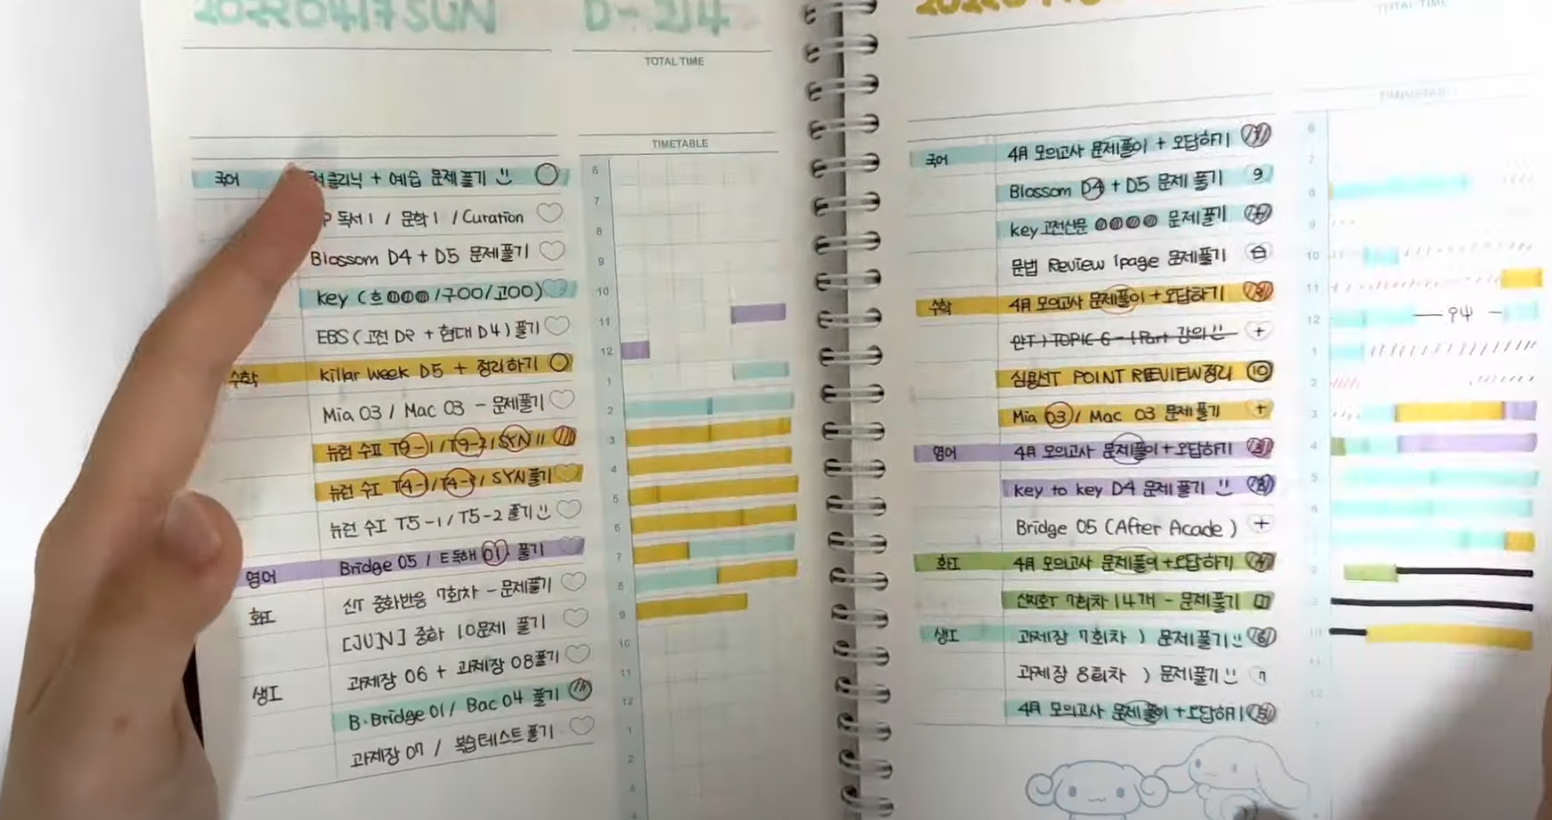 20220417 SUN D-214
TOTAL TIME
TIMETABLE
국어 클리닉 + 예습 문제풀기
독서 1 / 문학 1 / Curation
Blossom D4 + D5 문제풀기
key (호 /구OO/고OO)
EBS (고전 D2 + 현대 D4) 풀기
수학 killar week D5 + 정리하기
Mia 03 / Mac 03 - 문제풀기
뉴런 수II T9-1 / T9-2 / SYN
뉴런 수I T4-1 / T4-2 / SYN 풀기
뉴런 수I T5-1 / T5-2 풀기
영어 Bridge 05 / E독해 01 풀기
화I 신T 중화반응 7회차 - 문제풀기
[JUN] 중화 10문제 풀기
생I 과제장 06 + 과제장 08풀기
B·Bridge 01 / Bac 04 풀기
과제장 07 / 복습테스트풀기
6
7
8
9
10
11
12
1
2
3
4
5
6
7
8
9
10
11
12
1
2
3
4
TOTAL TIME
TIMETABLE
국어 4月 모의고사 문제풀이 + 오답하기
Blossom D4 + D5 문제 풀기 9
key 고전산문 문제풀기
문법 Review 1page 문제풀기
수학 4月 모의고사 문제풀이 + 오답하기
TOPIC 6 - 1Part 강의 +
심용T POINT REVIEW정리 10
Mia 03 / Mac 03 문제풀기 +
영어 4月 모의고사 문제풀이 + 오답하기
key to key D4 문제 풀기
Bridge 05 (After Acade) +
화I 4月 모의고사 문제풀이 + 오답하기
7회차 14개 - 문제풀기
생I 과제장 7회차 ) 문제풀기
과제장 8회차 ) 문제풀기 7
4月 모의고사 문제풀이 + 오답하기
6
7
8
9
10
11
12
1
2
3
4
5